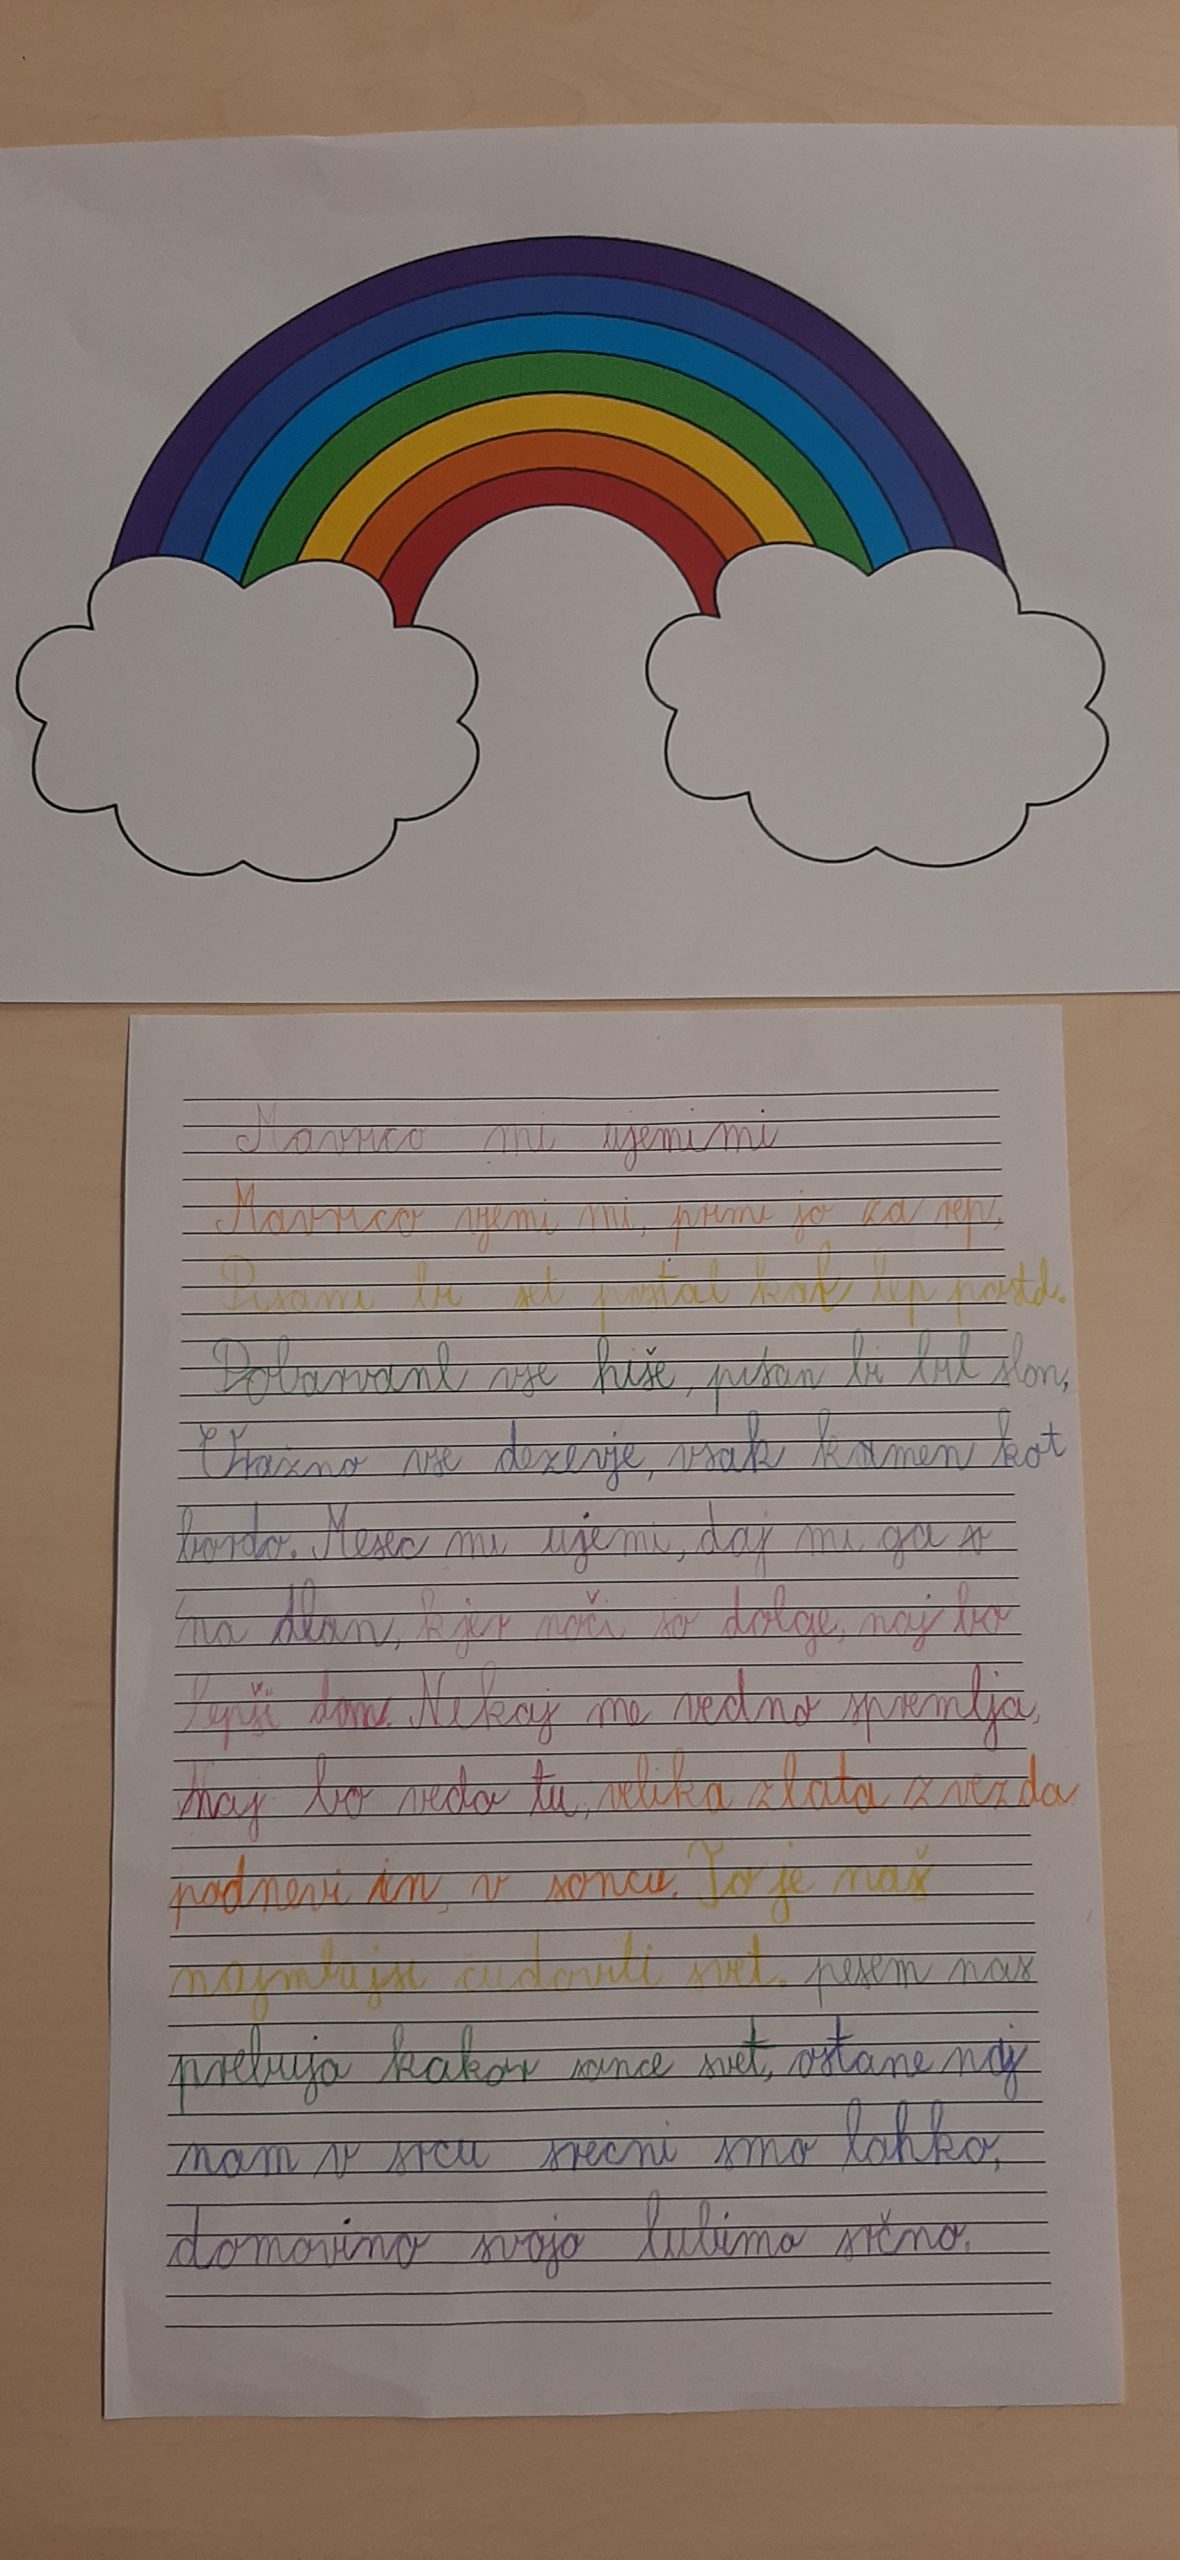 Mavrco mi ujemi mi
Mavrico ujemi mi, primi jo za rep,
Pisani bi set postal kak lep
Pobarvanl vse hiše, pisan bi bil slon,
vse dezevje, vsak kamen kot
bordo. Mesec mi ujemi, daj mi ga s
na dlan, kjer noči so dolge, naj bo
lepši dom. Nekaj me vedno spremlja,
Naj bo vedo tu, velika zlata zvezda
podnevi in, v soncu. To je naš
najmlajsi cudoviti svet. pesem nas
prebuja kakor sonce svet, ostane naj
nam v srcu srecni smo lahko,
domovino svojo lubimo srčno.